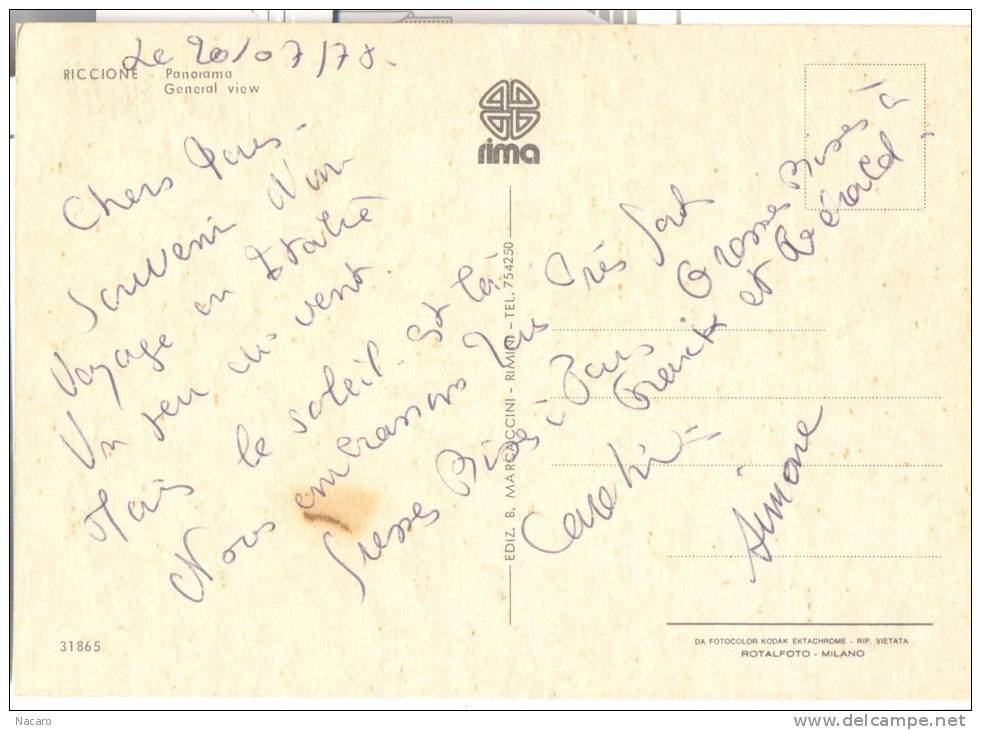 Le 20/07/78.
RICCIONE - Panorama
General view
rima
Chers Tous -
Souvenir d'un
Voyage en Italie
Un peu de vent.
Mais le soleil est là
Nous embrassons Tous très fort
Bises à Tous Grosses Bises à
Franck et
Simone
EDIZ. B. MARCACCINI - RIMINI - TEL. 754250
31865
DA FOTOCOLOR KODAK EKTACHROME - RIP. VIETATA
ROTALFOTO - MILANO
Nacaro
www.delcampe.net